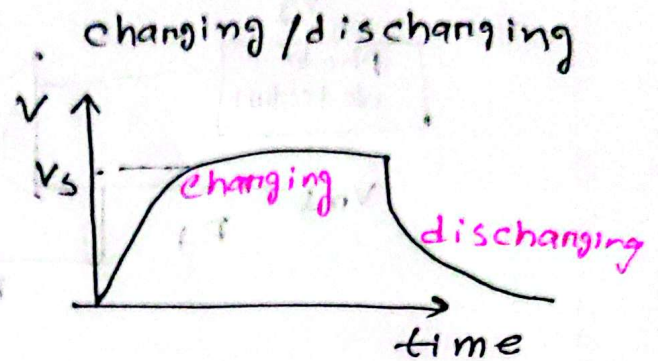 charging / discharging
V
Vs
charging
discharging
time